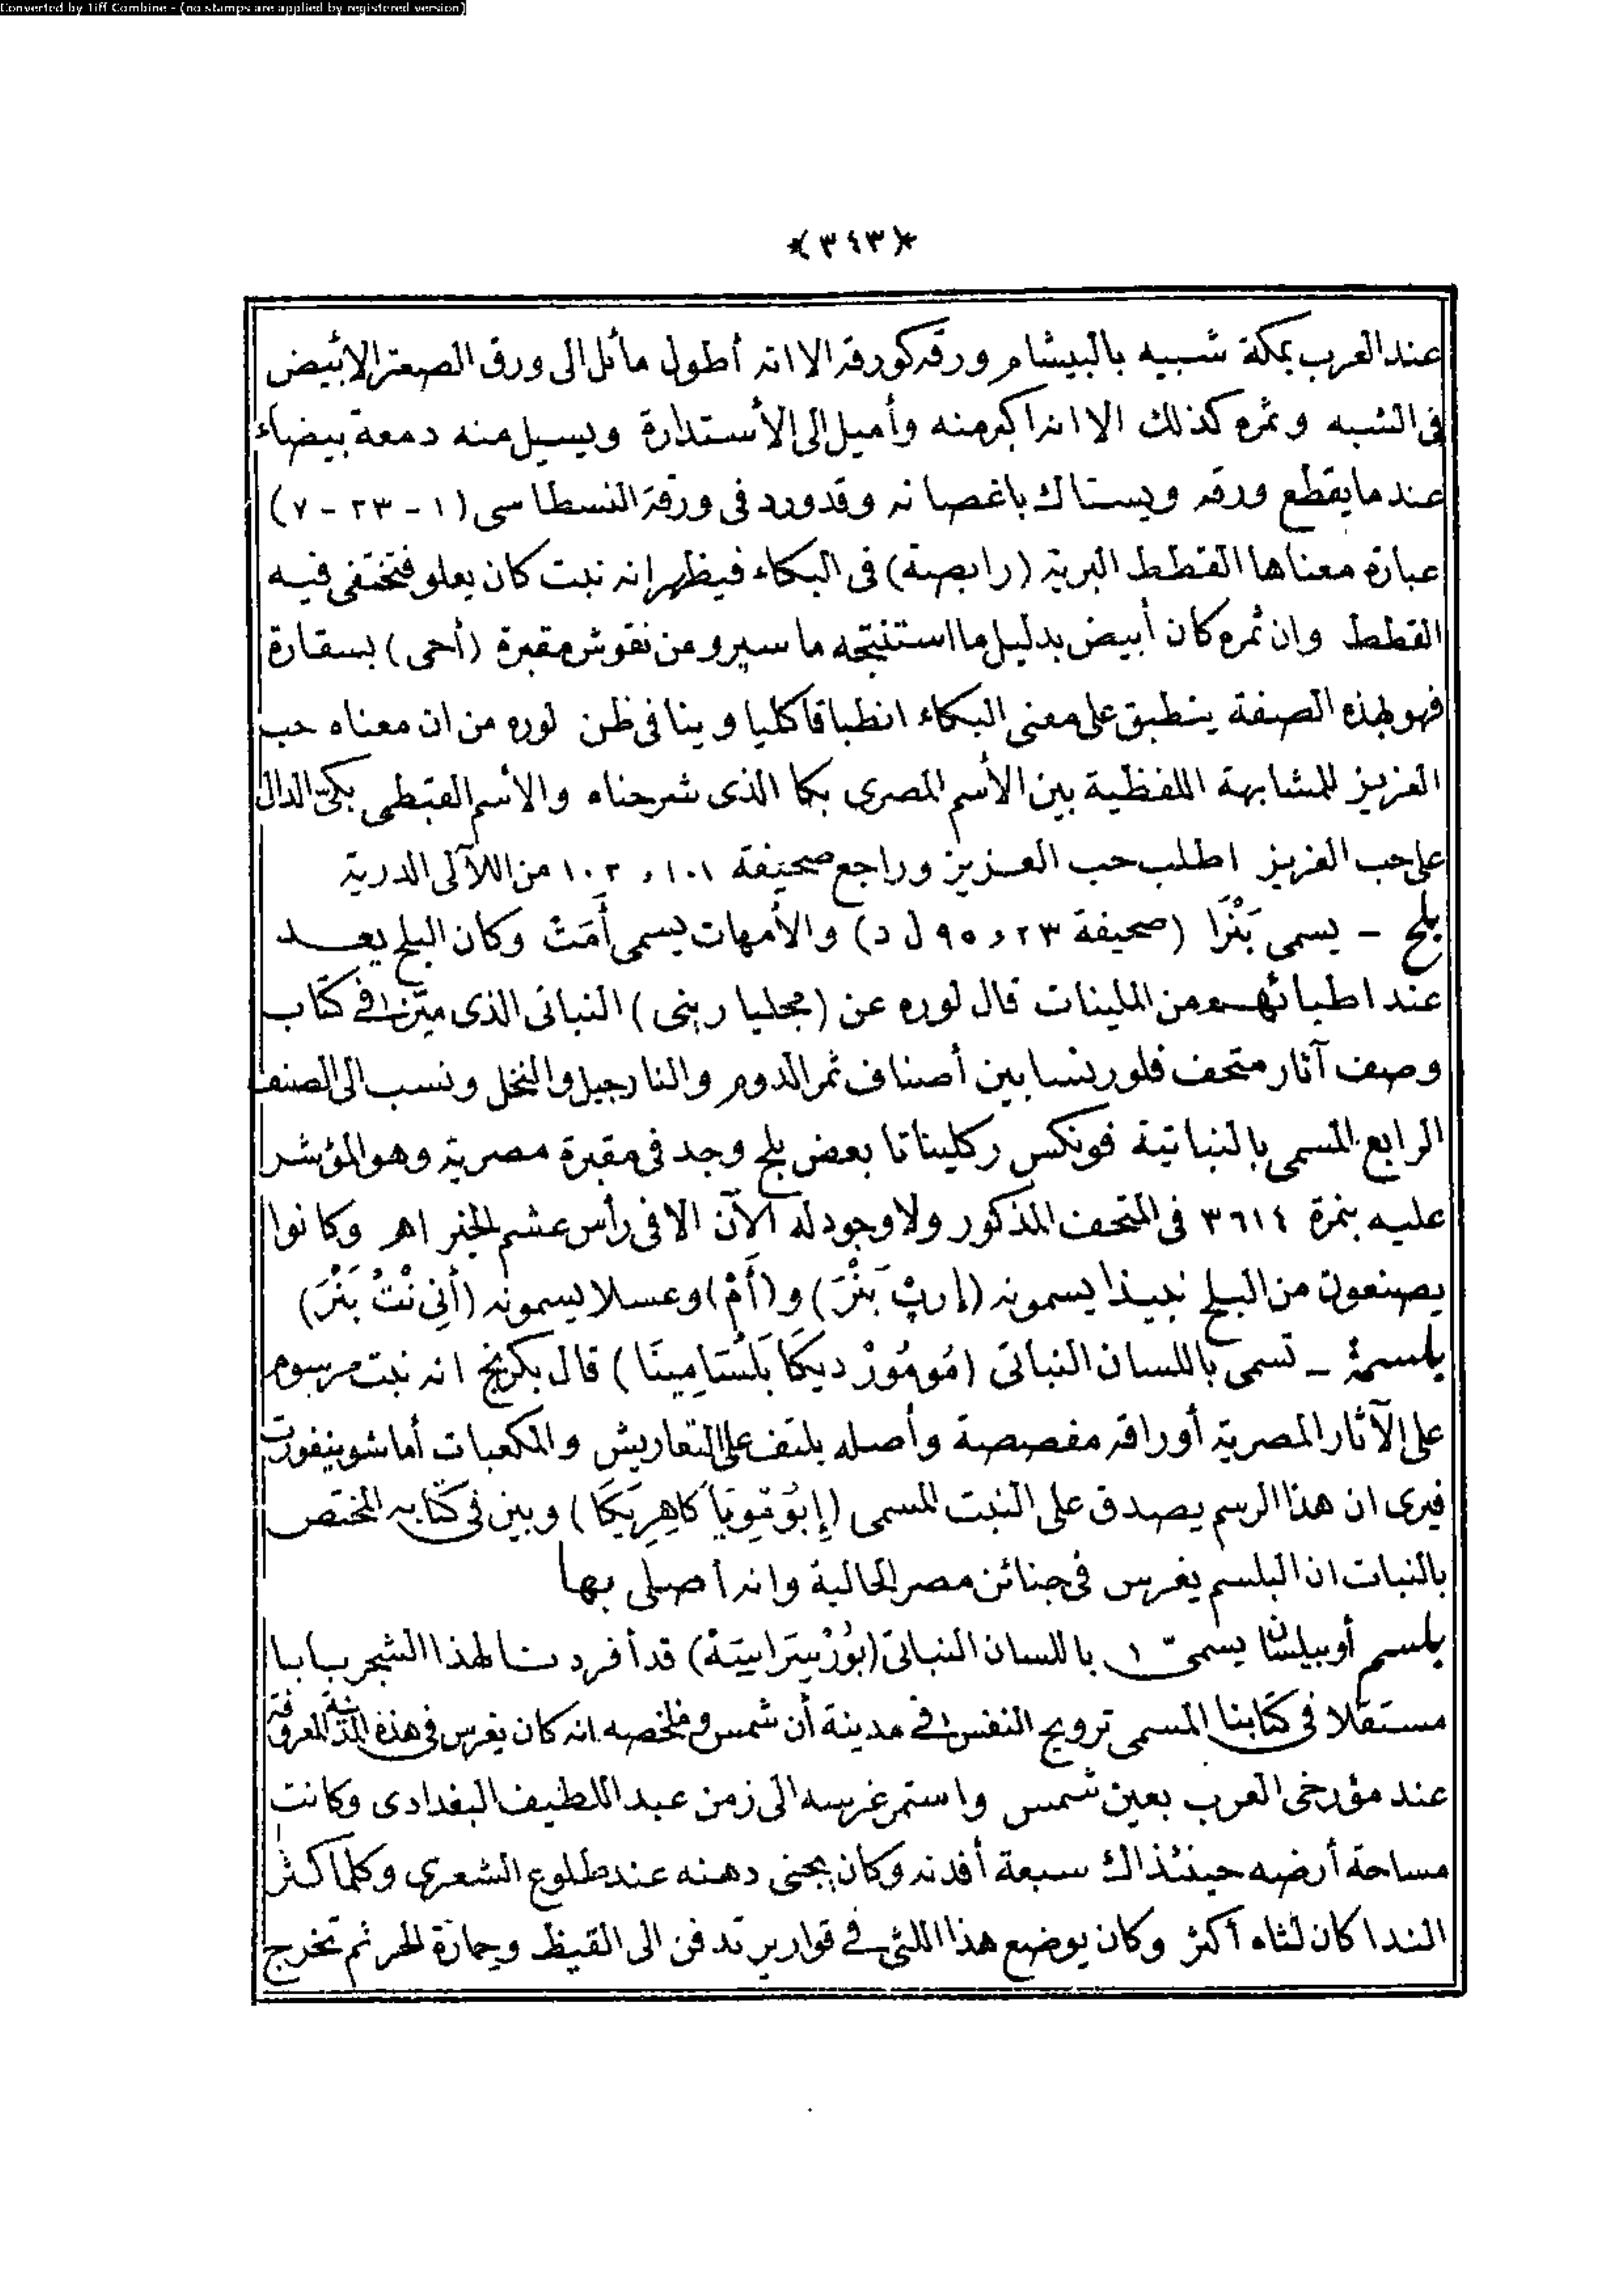 Converted by Tiff Combine - (no stamps are applied by registered version)
﴿٣٤٣﴾
عند العرب بمكة شبيه بالبيشام ورقه كورقه الا انه أطول مائل الى ورق الصعتر الابيض
فى الشبه وثمره كذلك الا انه اكبر منه وأميل الى الأستدارة ويسيل منه دمعة بيضاء
عند ما يقطع ورقه ويستاك باغصانه وقد ورد فى ورقة انسطاسى (١ - ٢٣ - ٧)
عبارة معناها القطط البرية (رابصة) فى البكاء فيظهر انه نبت كان يعلو فتختفى فيه
القطط وان ثمره كان أبيض بدليل ما استنتجه ماسپرو من نقوش مقبرة (أحى) بسقارة
فهو بهذه الصفة ينطبق على معنى البكاء انطباقا كليا وينافى ظن لوره من ان معناه حب
العزيز للمشابهة اللفظية بين الأسم المصرى بكا الذى شرحناه والأسم القبطى بكى الدال
على حب العزيز اطلب حب العزيز وراجع صحيفة ١٠١ و ١٠٢ من اللآلى الدرية
بلح - يسمى بَنْرَا (صحيفة ٢٣ و ٩٥ ل د) والأمهات يسمى أَمَتْ وكان البلح يعد
عند اطبائهم من الملينات قال لوره عن (مجليارينى) النباتى الذى ميّز فى كتاب
وصف آثار متحف فلورنسا بين أصناف ثمر الدوم والنارجيل والنخل ونسب الى الصنف
الرابع المسمى بالنباتية فونكس ركليناتا بعض بلح وجد فى مقبرة مصرية وهو المؤشر
عليه بنمرة ٣٦١٤ فى المتحف المذكور ولا وجود له الآن الا فى رأس عشم الخير اهر وكانوا
يصنعون من البلح نبيذا يسمونه (إرپ بَنْرَ) و(أَمْ) وعسلا يسمونه (أَنِى نْتُ بَنْرَ)
بلسمة - تسمى باللسان النباتى (مُومُورْ ديكَا بَلْسَامِينَا) قال بكرنج انه نبت مرسوم
على الآثار المصرية أوراقه مفصصة وأصله يلتف على التعاريش والمكعبات أما شوينفورت
فيرى ان هذا الرسم يصدق على النبت المسمى (إِبُومْوِيَا كَاهِرِيكَا) وبين فى كتابه المختص
بالنبات ان البلسم يغرس فى جنائن مصر الحالية وانه أصلى بها
بلسم أو بيلسان يسمى باللسان النباتى (بُورْسِرَاسِيَة) قد أفردنا لهذا الشجر بابا
مستقلا فى كتابنا المسمى ترويح النفس فى مدينة أن شمس وملخصه انه كان يغرس فى هذه المدينة المعروفة
عند مؤرخى العرب بعين شمس واستمر غرسه الى زمن عبد اللطيف البغدادى وكانت
مساحة أرضه حينئذاك سبعة أفدنه وكان يجنى دهنه عند طلوع الشعرى وكلما كثر
الندا كان لثاه أكثر وكان يوضع هذا اللثى فى قوارير تدفن الى القيظ وحمارة الحر ثم تخرج